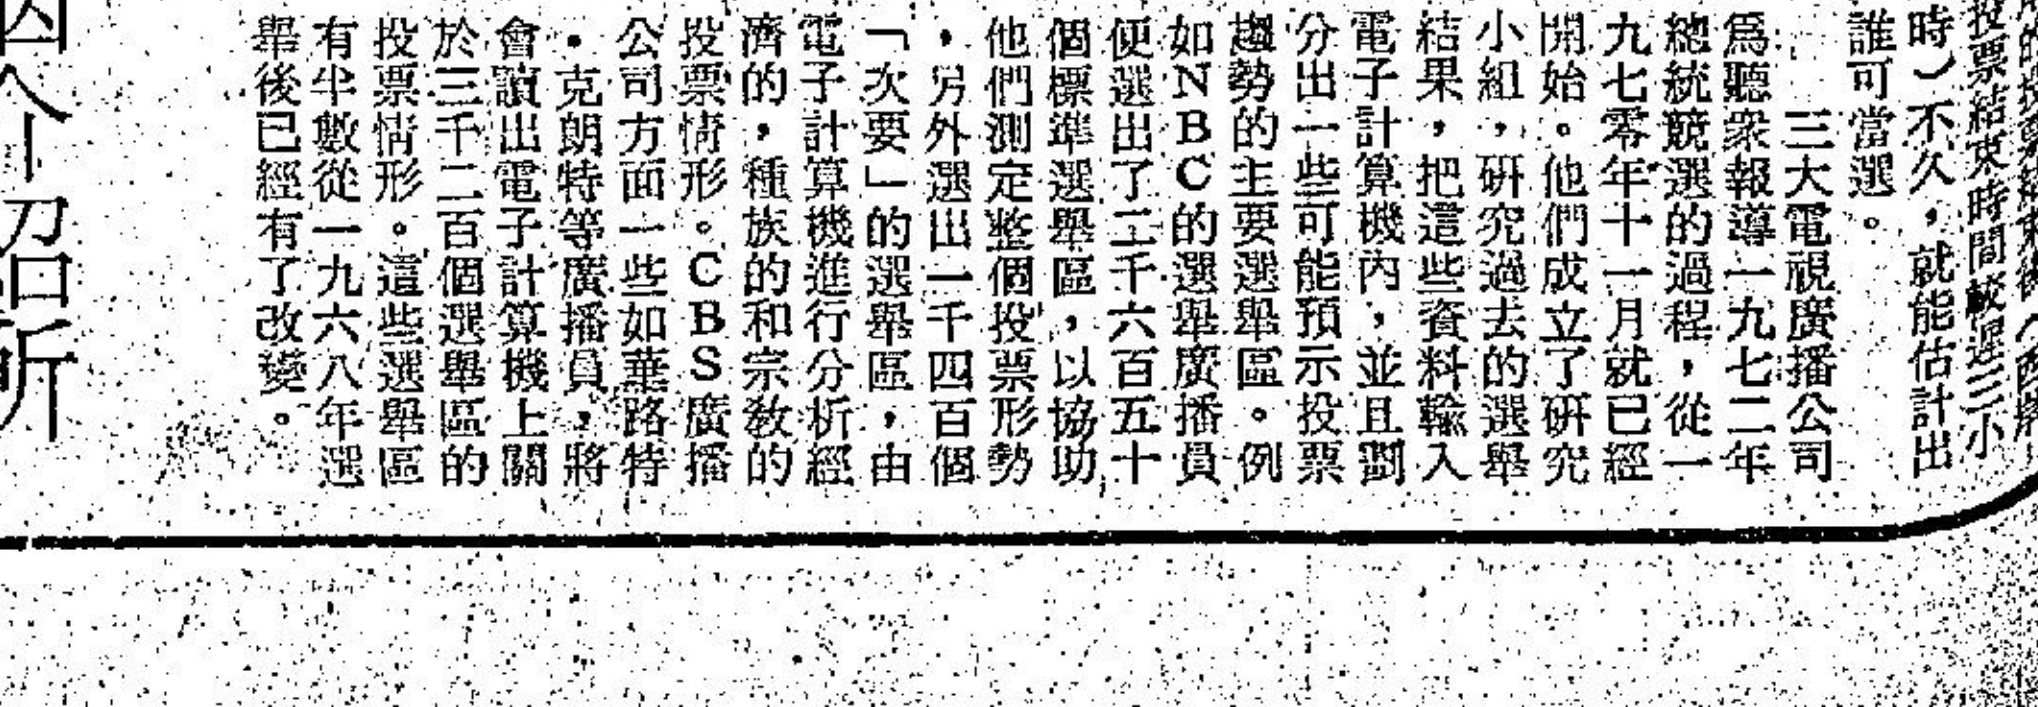 投票結束時間較遲三小
時）不久，就能估計出
誰可當選。
三大電視廣播公司
爲聽衆報導一九七二年
總統競選的過程，從一
九七零年十一月就已經
開始。他們成立了研究
小組，研究過去的選舉
結果，把這些資料輸入
電子計算機內，並且劃
分出一些可能預示投票
趨勢的主要選舉區。例
如NBC的選舉廣播員
便選出了二千六百五十
個標準選舉區，以協助
他們測定整個投票形勢
，另外選出一千四百個
「次要」的選舉區，由
電子計算機進行分析經
濟的，種族的和宗教的
投票情形。CBS廣播
公司方面一些如華路特
・克朗特等廣播員，將
會讀出電子計算機上關
於三千二百個選舉區的
投票情形。這些選舉區
有半數從一九六八年選
舉後已經有了改變。